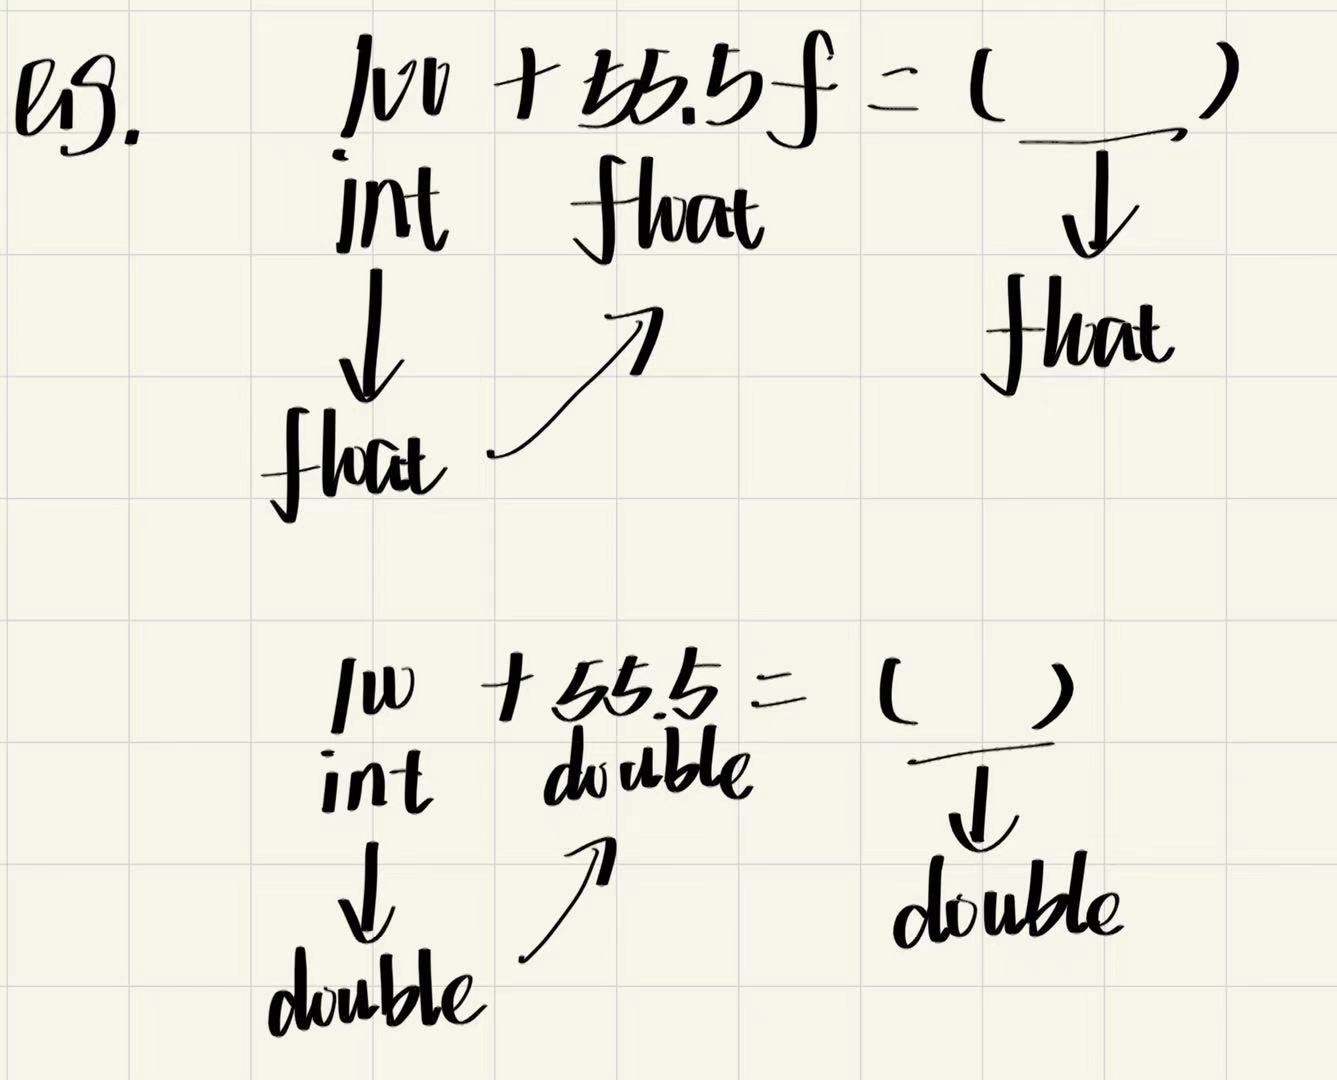 eg. 100 + 55.5f = ( )
int float
float
float
100 + 55.5 = ( )
int double
double
double